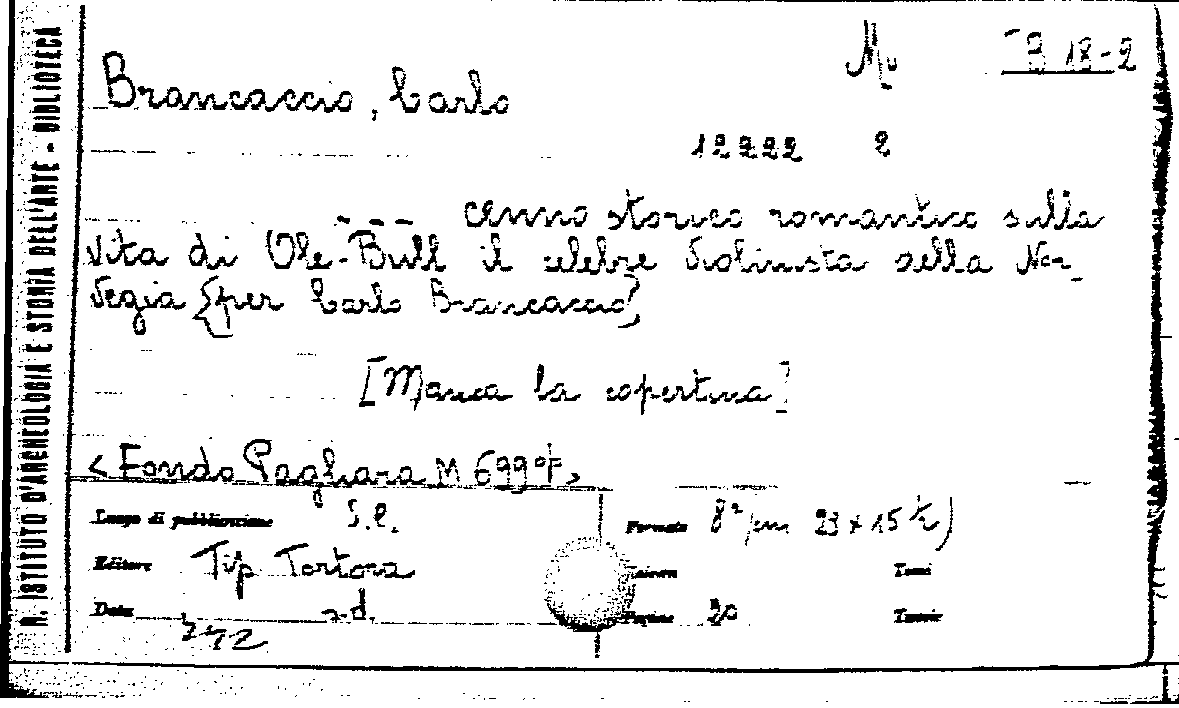 R. ISTITUTO D'ARCHEOLOGIA E STORIA DELL'ARTE - BIBLIOTECA
Mu B 18-2
Brancaccio, Carlo
12222 2
--- cenno storico romantico sulla
vita di Ole-Bull il celebre violinista della Nor-
vegia [per Carlo Brancaccio]
[Manca la copertina]
<Fondo Pagliara M 699>
Luogo di pubblicazione S.l.
Formato 8° (cm 23 x 15 ½)
Editore Tip Tortora
Volumi
Tomi
Data s.d.
Pagine 20
Tavole
772